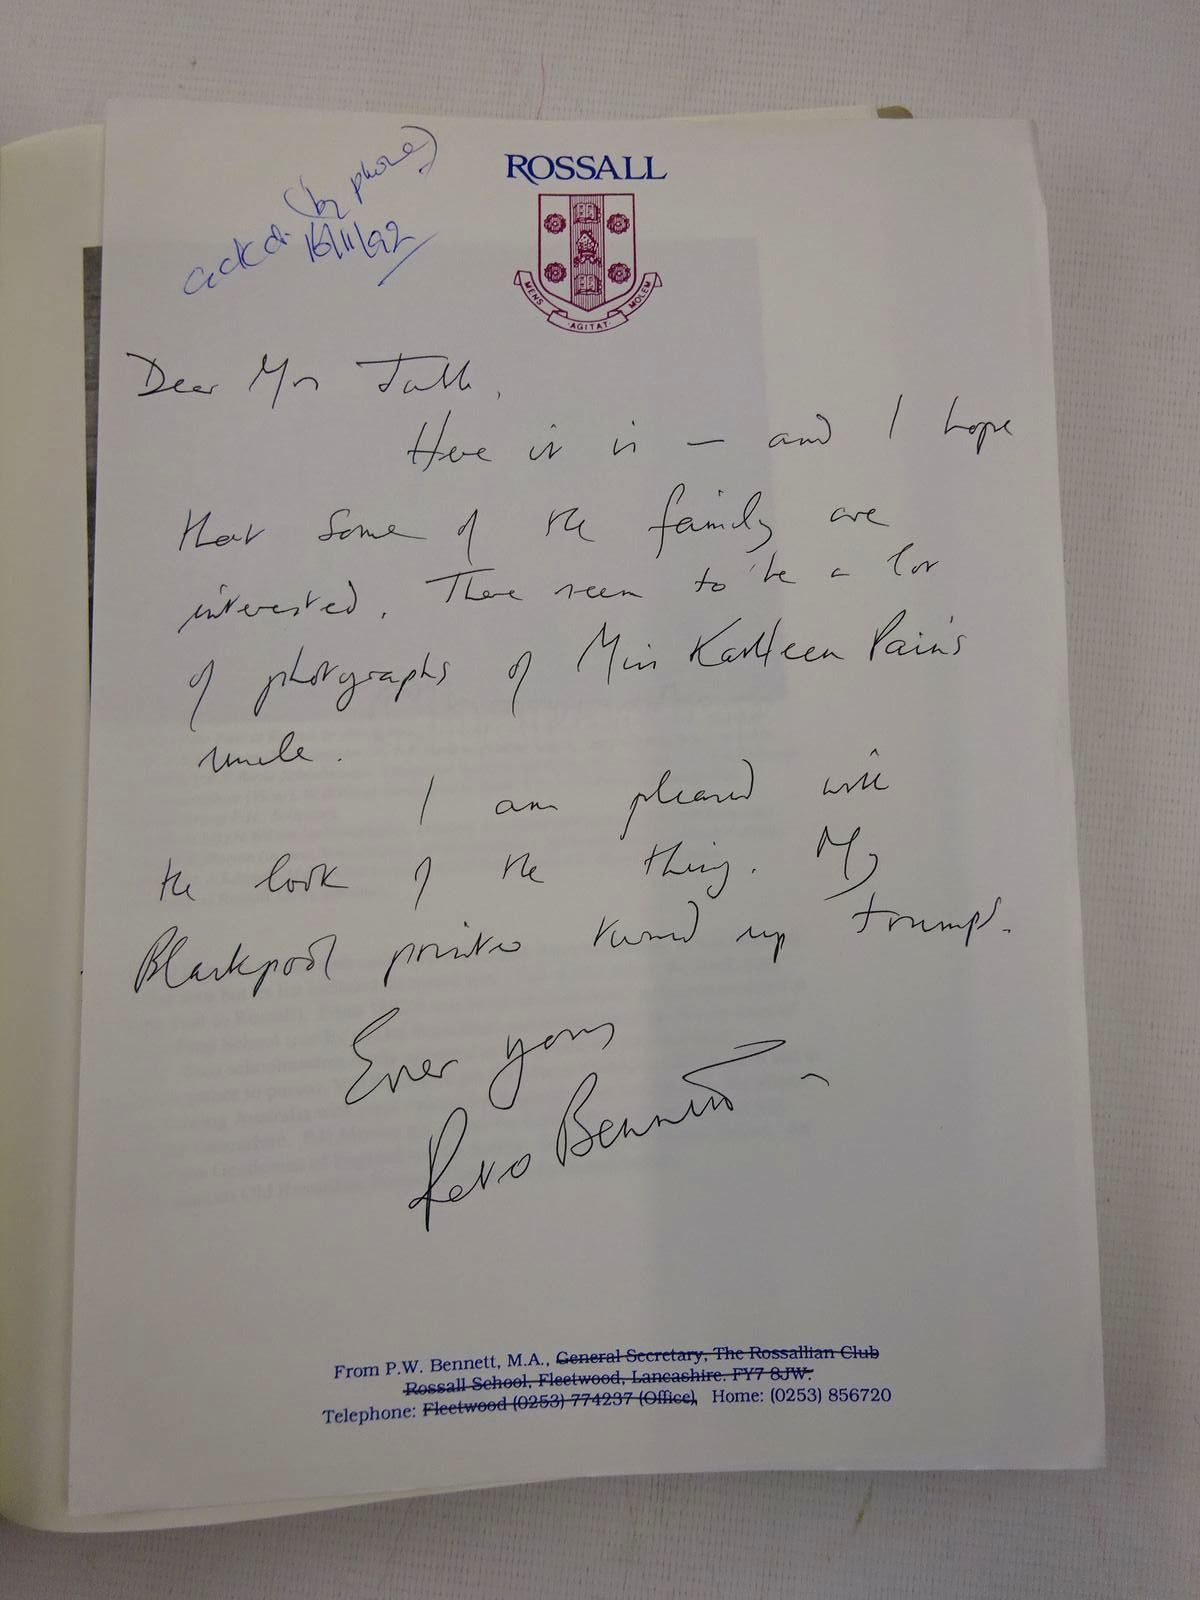 ackd. (by phone)
16/11/92
ROSSALL
MENS AGITAT MOLEM
Dear Mrs
Here it is — and I hope
that some of the family are
interested. There seem to be a lot
of photographs of Miss Kathleen Pain's
uncle.
I am pleased with
the look of the thing. My
Blackpool printer turned up trumps.
Ever yours
Peter Bennett
From P.W. Bennett, M.A., General Secretary, The Rossallian Club
Rossall School, Fleetwood, Lancashire. FY7 8JW.
Telephone: Fleetwood (0253) 774237 (Office), Home: (0253) 856720